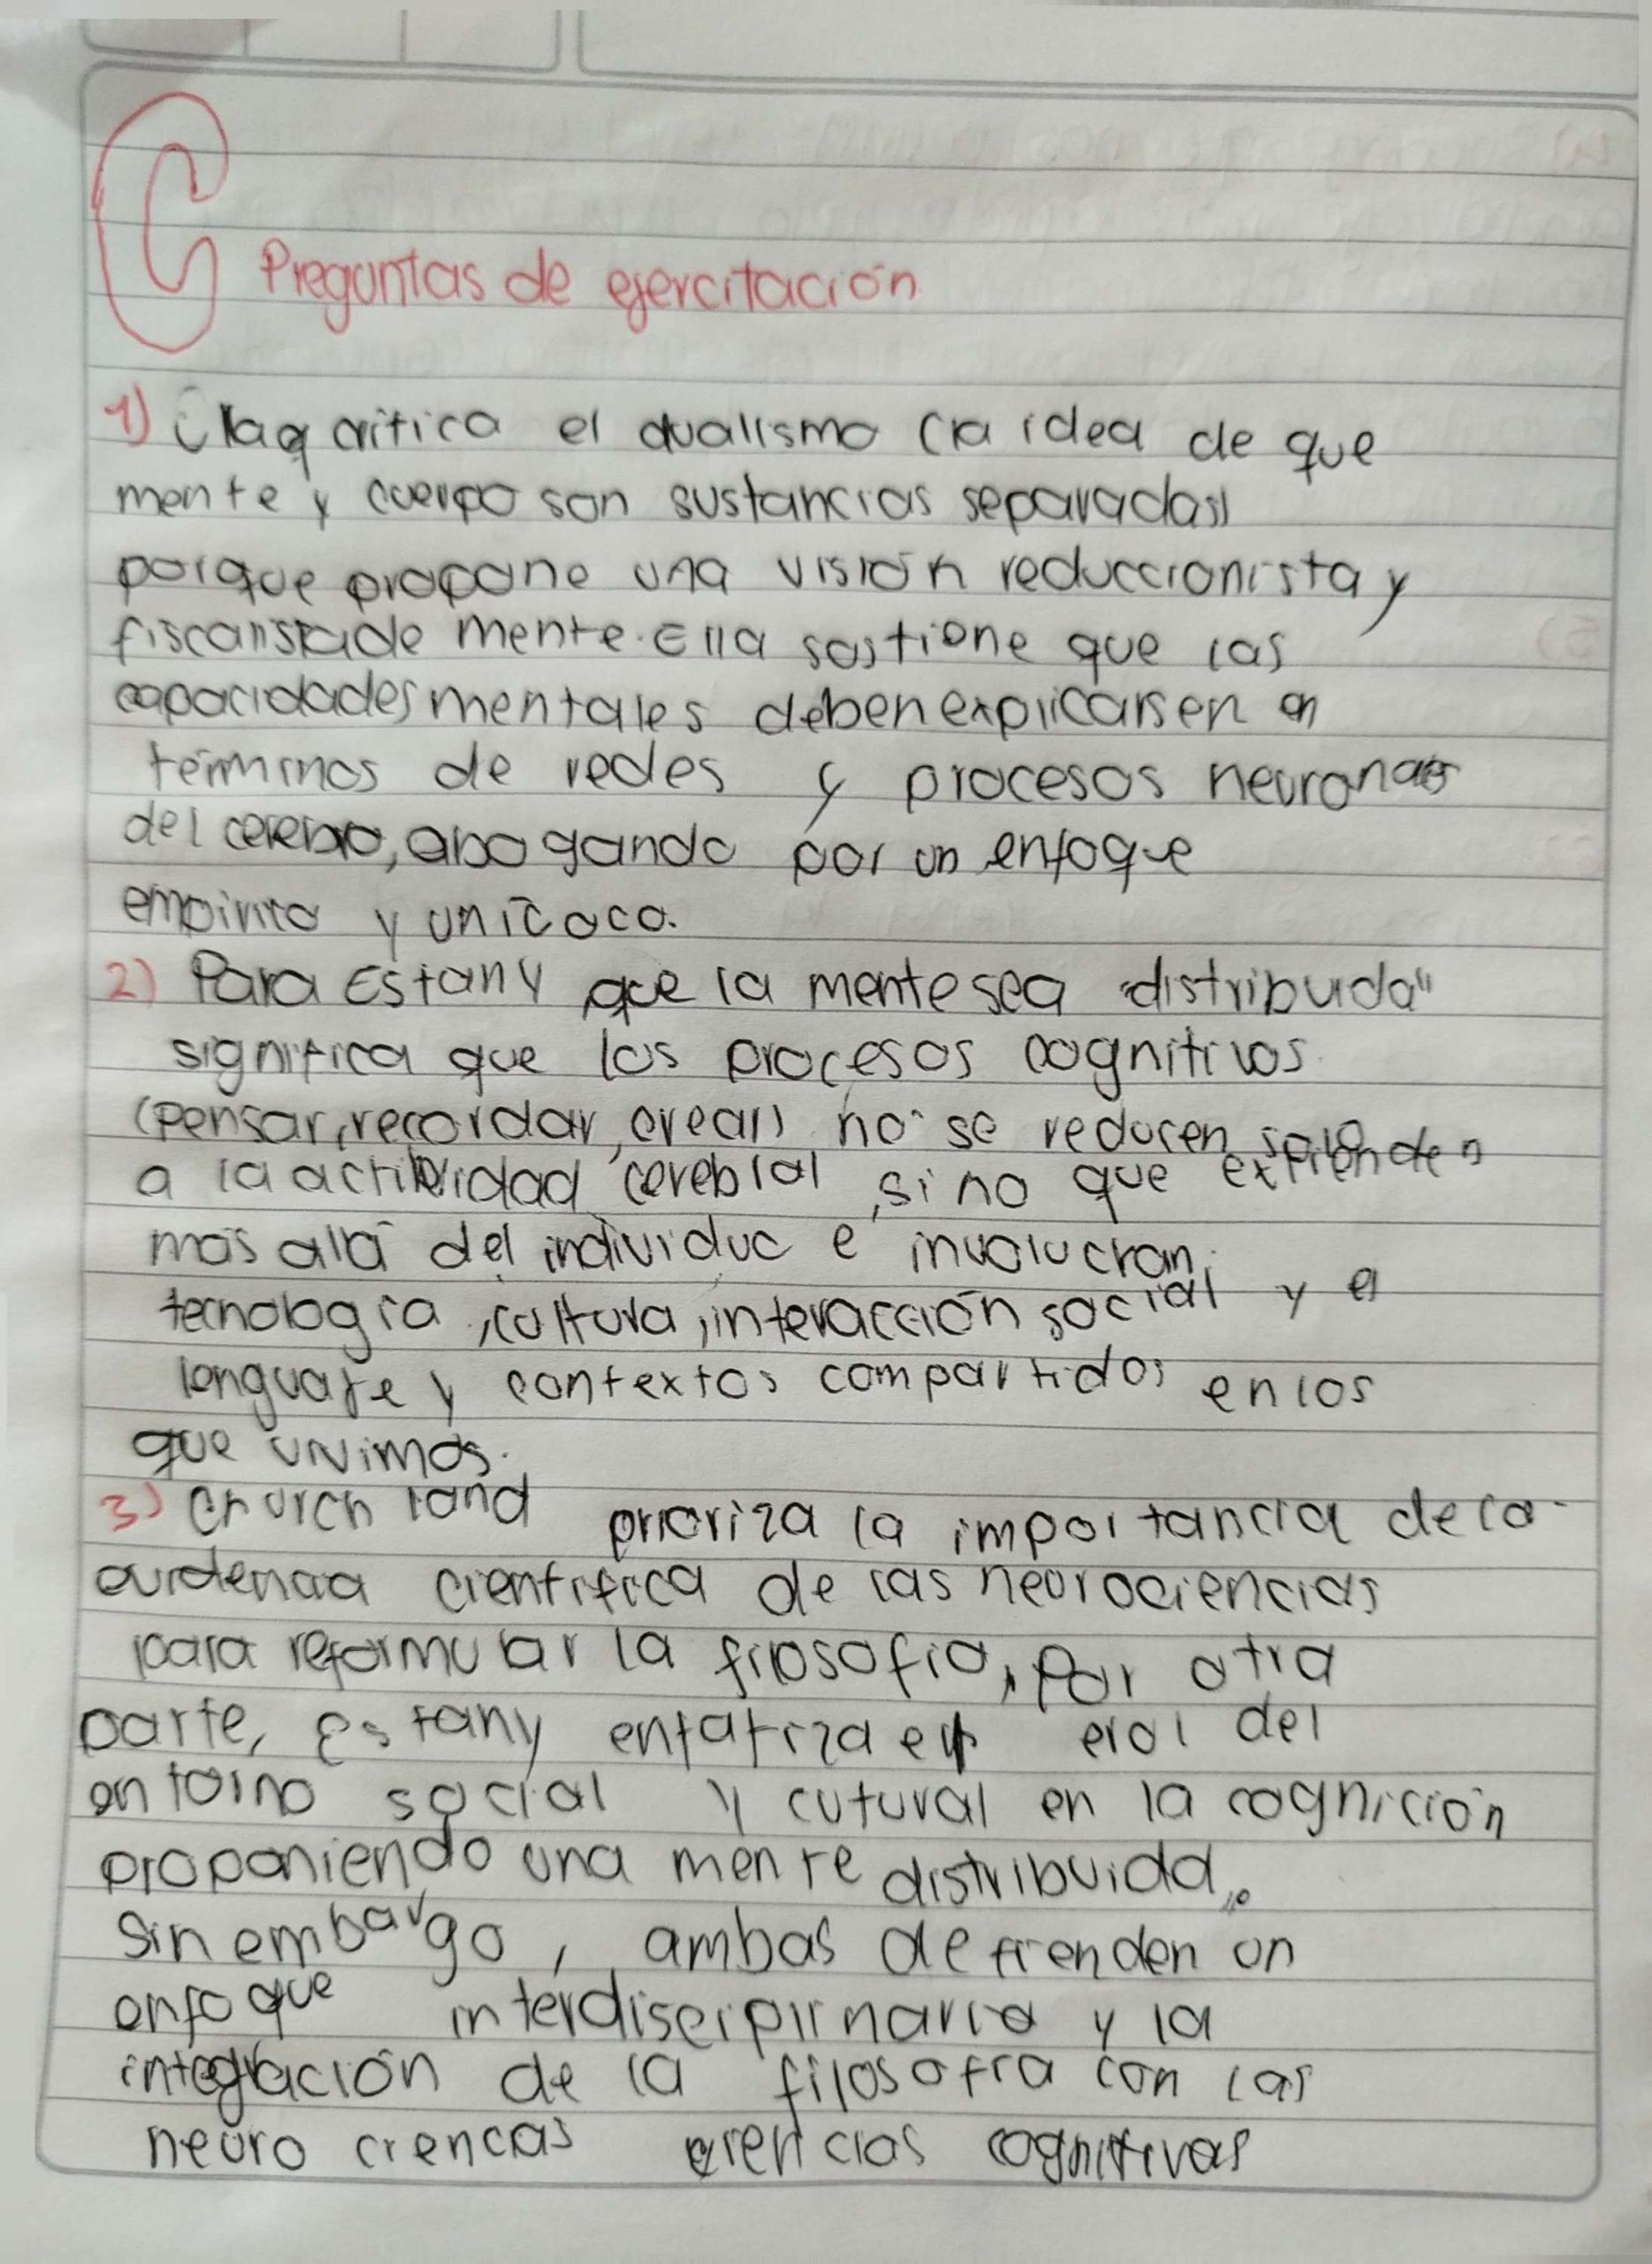 C
Preguntas de ejercitación
1) critica el dualismo (la idea de que
mente y cuerpo son sustancias separadas)
porque propone una visión reduccionista y
fiscalista de mente. Ella sostiene que las
capacidades mentales deben explicarsen en
términos de redes y procesos neuronales
del cerebro, abogando por un enfoque
empirico y
2) Para Estany que la mente sea "distribuida"
significa que los procesos cognitivos
(pensar, recordar, crear) no se reducen solo
a la actividad cerebral, sino que extienden
más allá del individuo e involucran
tecnología, cultura, interacción social y el
lenguaje y contextos compartidos en los
que vivimos.
3) Church land prioriza la importancia de la
evidencia cientifica de las neurociencias
para reformular la filosofia, Por otra
parte, Estany enfatiza el erol del
entorno social y cutural en la cognición
proponiendo una mente distribuida.
Sin embargo, ambas defienden un
enfoque interdisciplinario y la
integración de la filosofia con las
neuro ciencias ciencias cognitivas